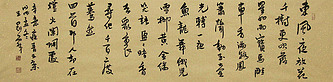 東風夜放花
千樹更吹落
星如雨寶馬雕
車香滿路鳳
簫聲動玉壺
光轉一夜
魚龍舞蛾兒
雪柳黃金縷
笑語盈盈暗
香去眾裡尋他
千百度
驀然
回首那人却在
燈火闌珊處
辛棄疾青玉案